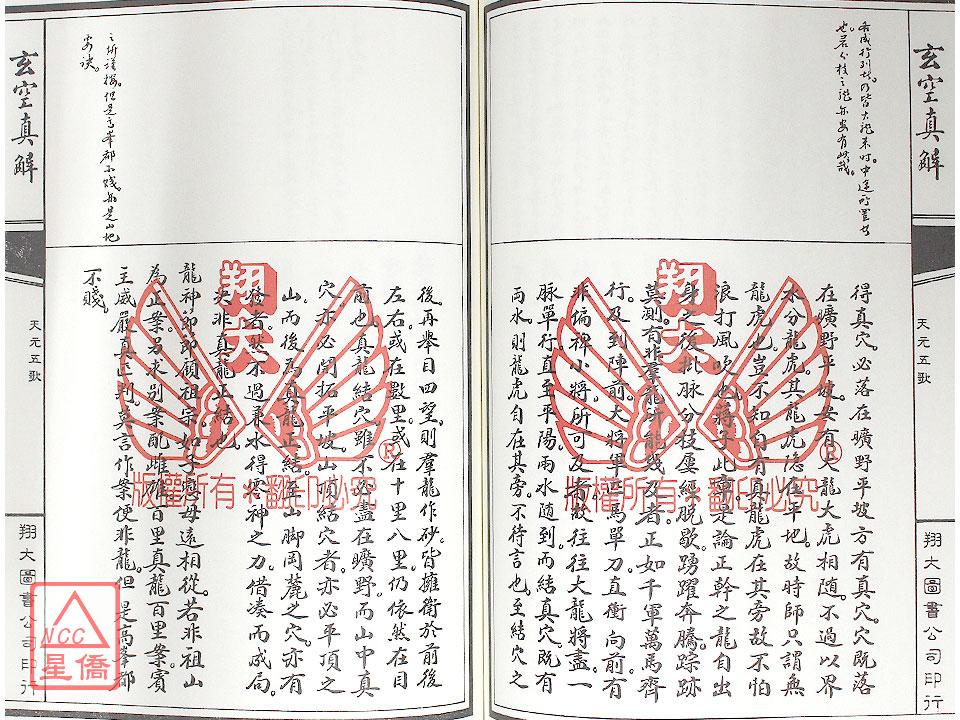 玄空真解
天元五歌
翔大圖書公司印行
得真穴。必落在曠野平坡方有真穴。穴既落
在曠野平坡。安有大龍大虎相隨。不過以界
水分龍虎。其龍虎隱在平地。故時師只謂無
龍虎也。豈不知自有真龍虎在其旁。故不怕
浪打風吹也。蔣子此章是論正幹之龍。自出
身之後。抽脈分枝。屢經脫歇。踴躍奔騰。踪跡
莫測。有非羣龍所能幾及者。正如千軍萬馬齊
行。及到陣前。大將軍匹馬單刀直衝向前。有
非偏裨小將所可及者。故往往大龍將盡。一
脈單行。直至平陽。兩水隨到。而結真穴。既有
兩水。則龍虎自在其旁。不待言也。至結穴之
後。再舉目四望。則羣龍作砂。皆擁衛於前後
左右。或在數里。或在十里八里。仍依然在目
前也。真龍結穴。雖不必盡在曠野。而山中真
穴。亦必開拓平坡。山頂結穴者。亦必平頂之
山。而後為真龍正結。至山脚岡麓之穴。亦有
發者。然不過兼水得零神之力。借湊而成局。
夫非真龍正結也。
龍神節節顧祖宗。如子戀母遠相從。若非祖山
為正案。另求別案配雌雄。百里真龍百里案。賓
主威嚴真正判。莫言作案便非龍。但是高峯都
不賤。
玄空真解
天元五歌
翔大圖書公司印行
翔大
®
版權所有 翻印必究
翔大
®
版權所有 翻印必究
NCC
星僑